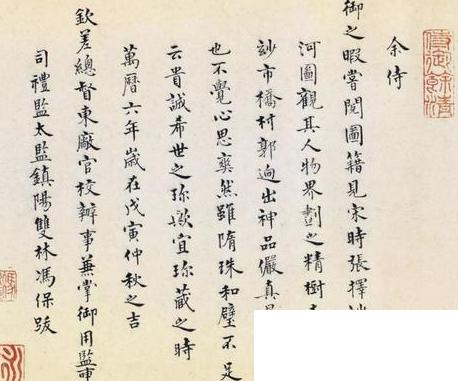 余侍
御之暇嘗閱圖籍見宋時張擇
河圖觀其人物界劃之精樹
玅市橋村郭迥出神品儼真
也不覺心思爽然雖隋珠和璧不足
云貴誠希世之珍歟宜珍藏之時
萬曆六年歲在戊寅仲秋之吉
欽差總督東廠官校辦事兼掌御用監事
司禮監太監鎮陽雙林馮保跋